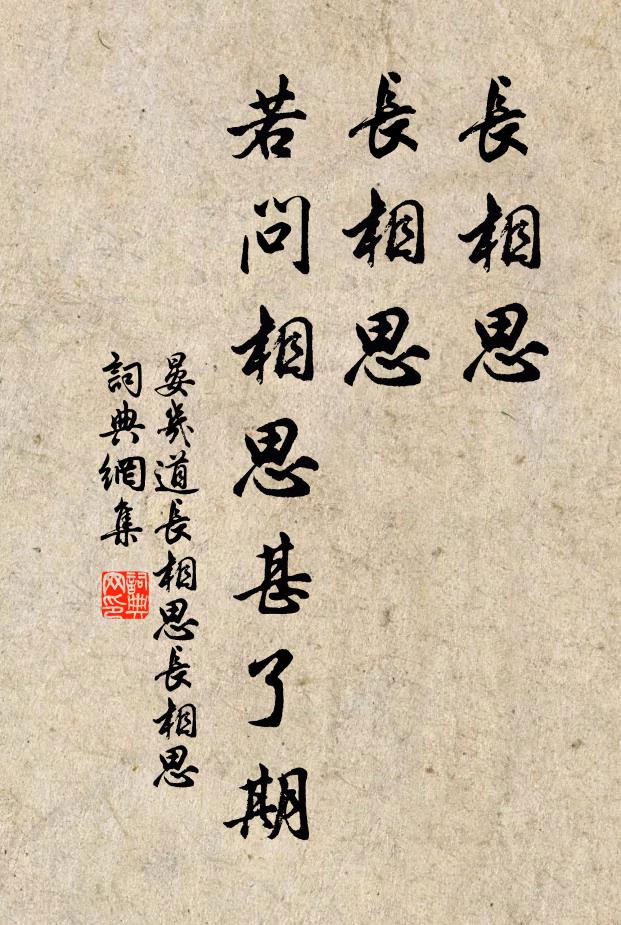 長相思
長相思
若問相思甚了期
晏幾道長相思長相思
詞典網集
詞典
网印